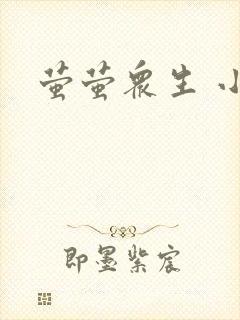 萤萤众生 小
即墨紫宸